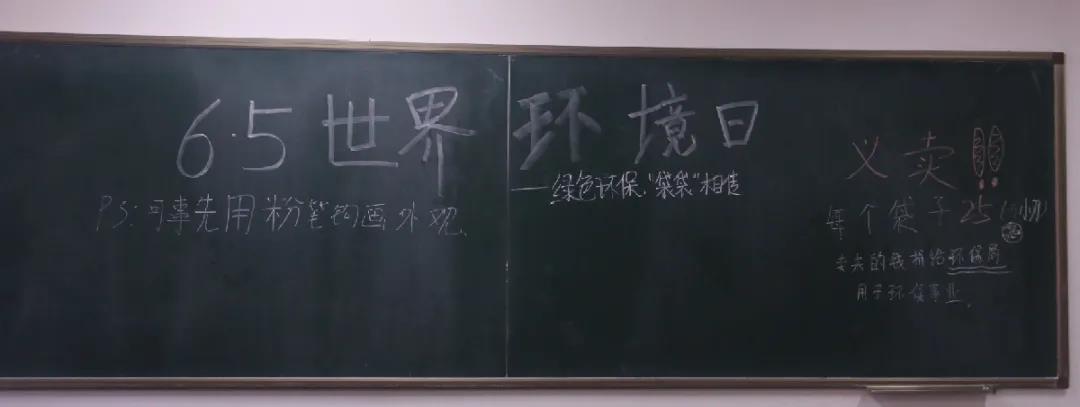 6.5世界环境日
——绿色环保,“袋袋”相传
PS:可事先用粉笔钩画外观
义卖!!
每个袋子25
卖去的钱捐给环保局
用于环保事业。